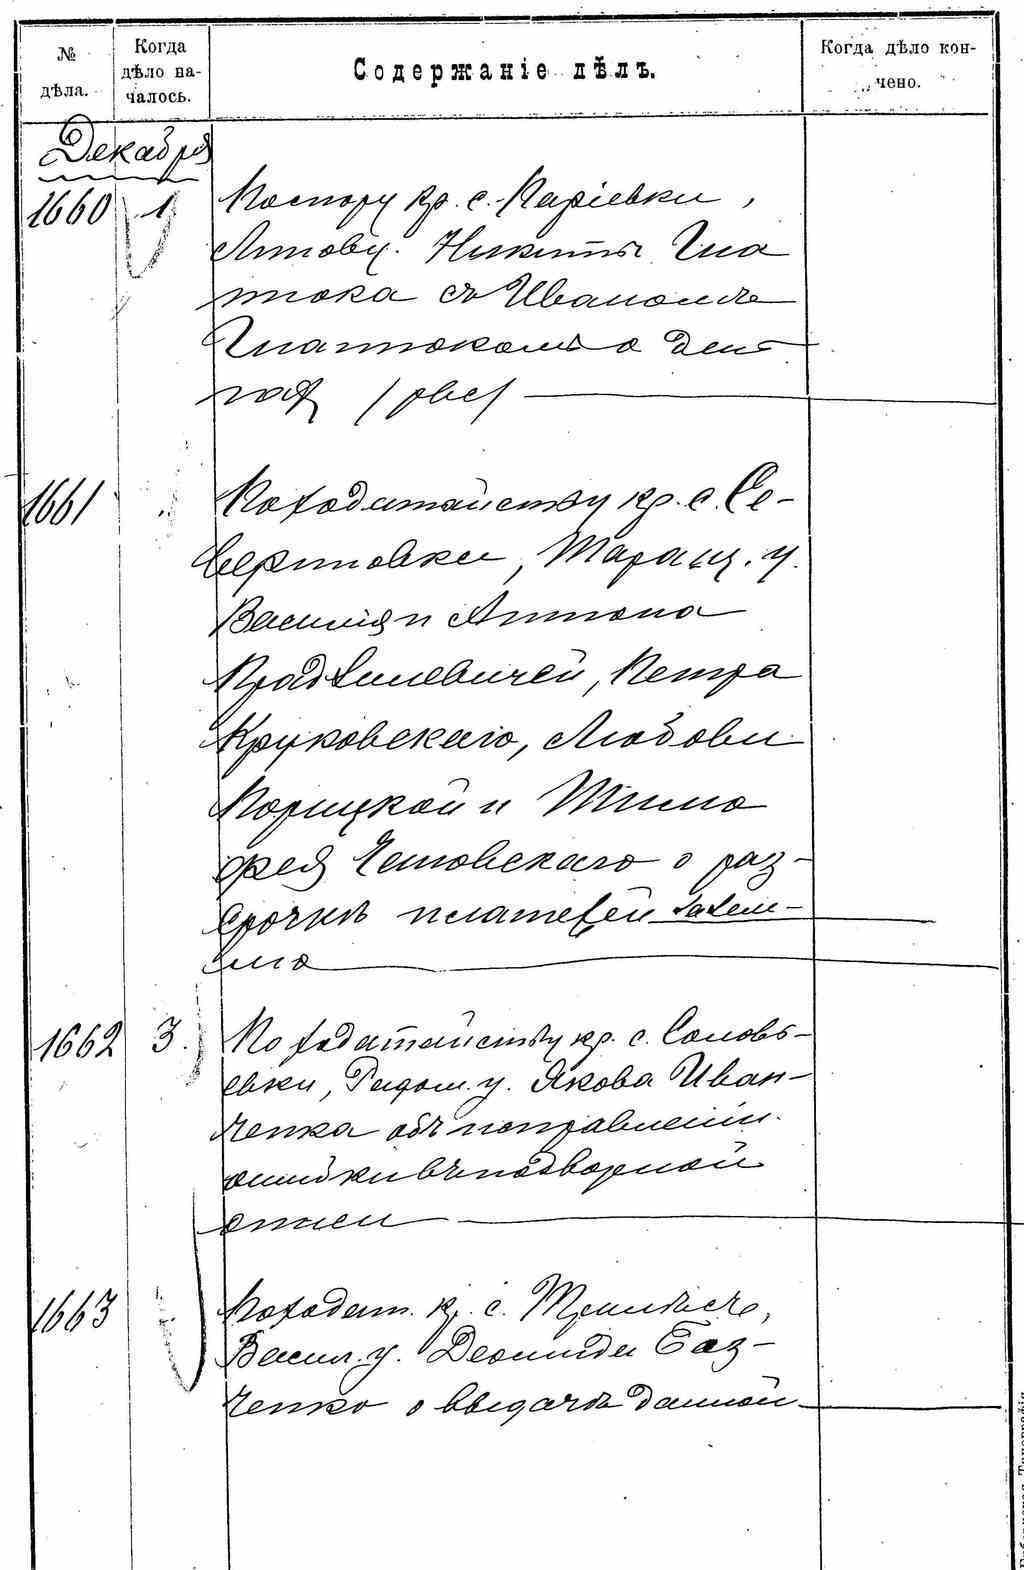 № дѣла.
Когда дѣло на-
чалось.
Содержаніе дѣлъ.
Когда дѣло кон-
чено.
Декабря
1660 1 По спору кр. с. Каріевки,
Липовц. Никиты Гна
тюка съ Иваномъ
Гнатюкомъ о день
гах
1661 По ходатайству кр. с. Се-
вериновки, Таращ. у.
Василія и Антона
Петра
Круковскаго, Любови
Корицкой и Тимо
фея о раз-
срочкѣ платежей за зем-
лю
1662 3. По ходатайству кр. с. Соловь-
евки, Радом. у. Якова Иван-
ченка объ исправленіи
ошибки въ подворной
описи
1663 По ходат. кр. с. Трилѣсъ,
Васил. у. Леонида Баз-
ченко о выдачѣ данной